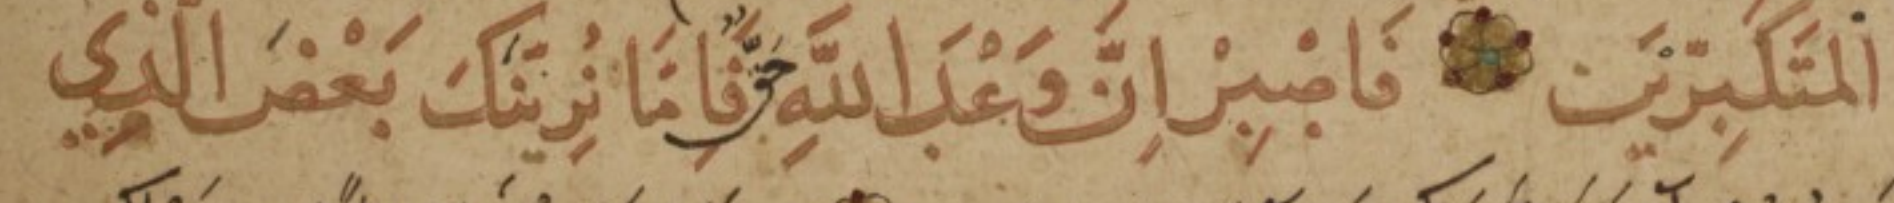 المُتَكَبِّرِيْنَ ۝ فَاصْبِرْ اِنَّ وَعْدَ اللّٰهِ حَقٌّ فَاِمَّا نُرِيَنَّكَ بَعْضَ الَّذِي